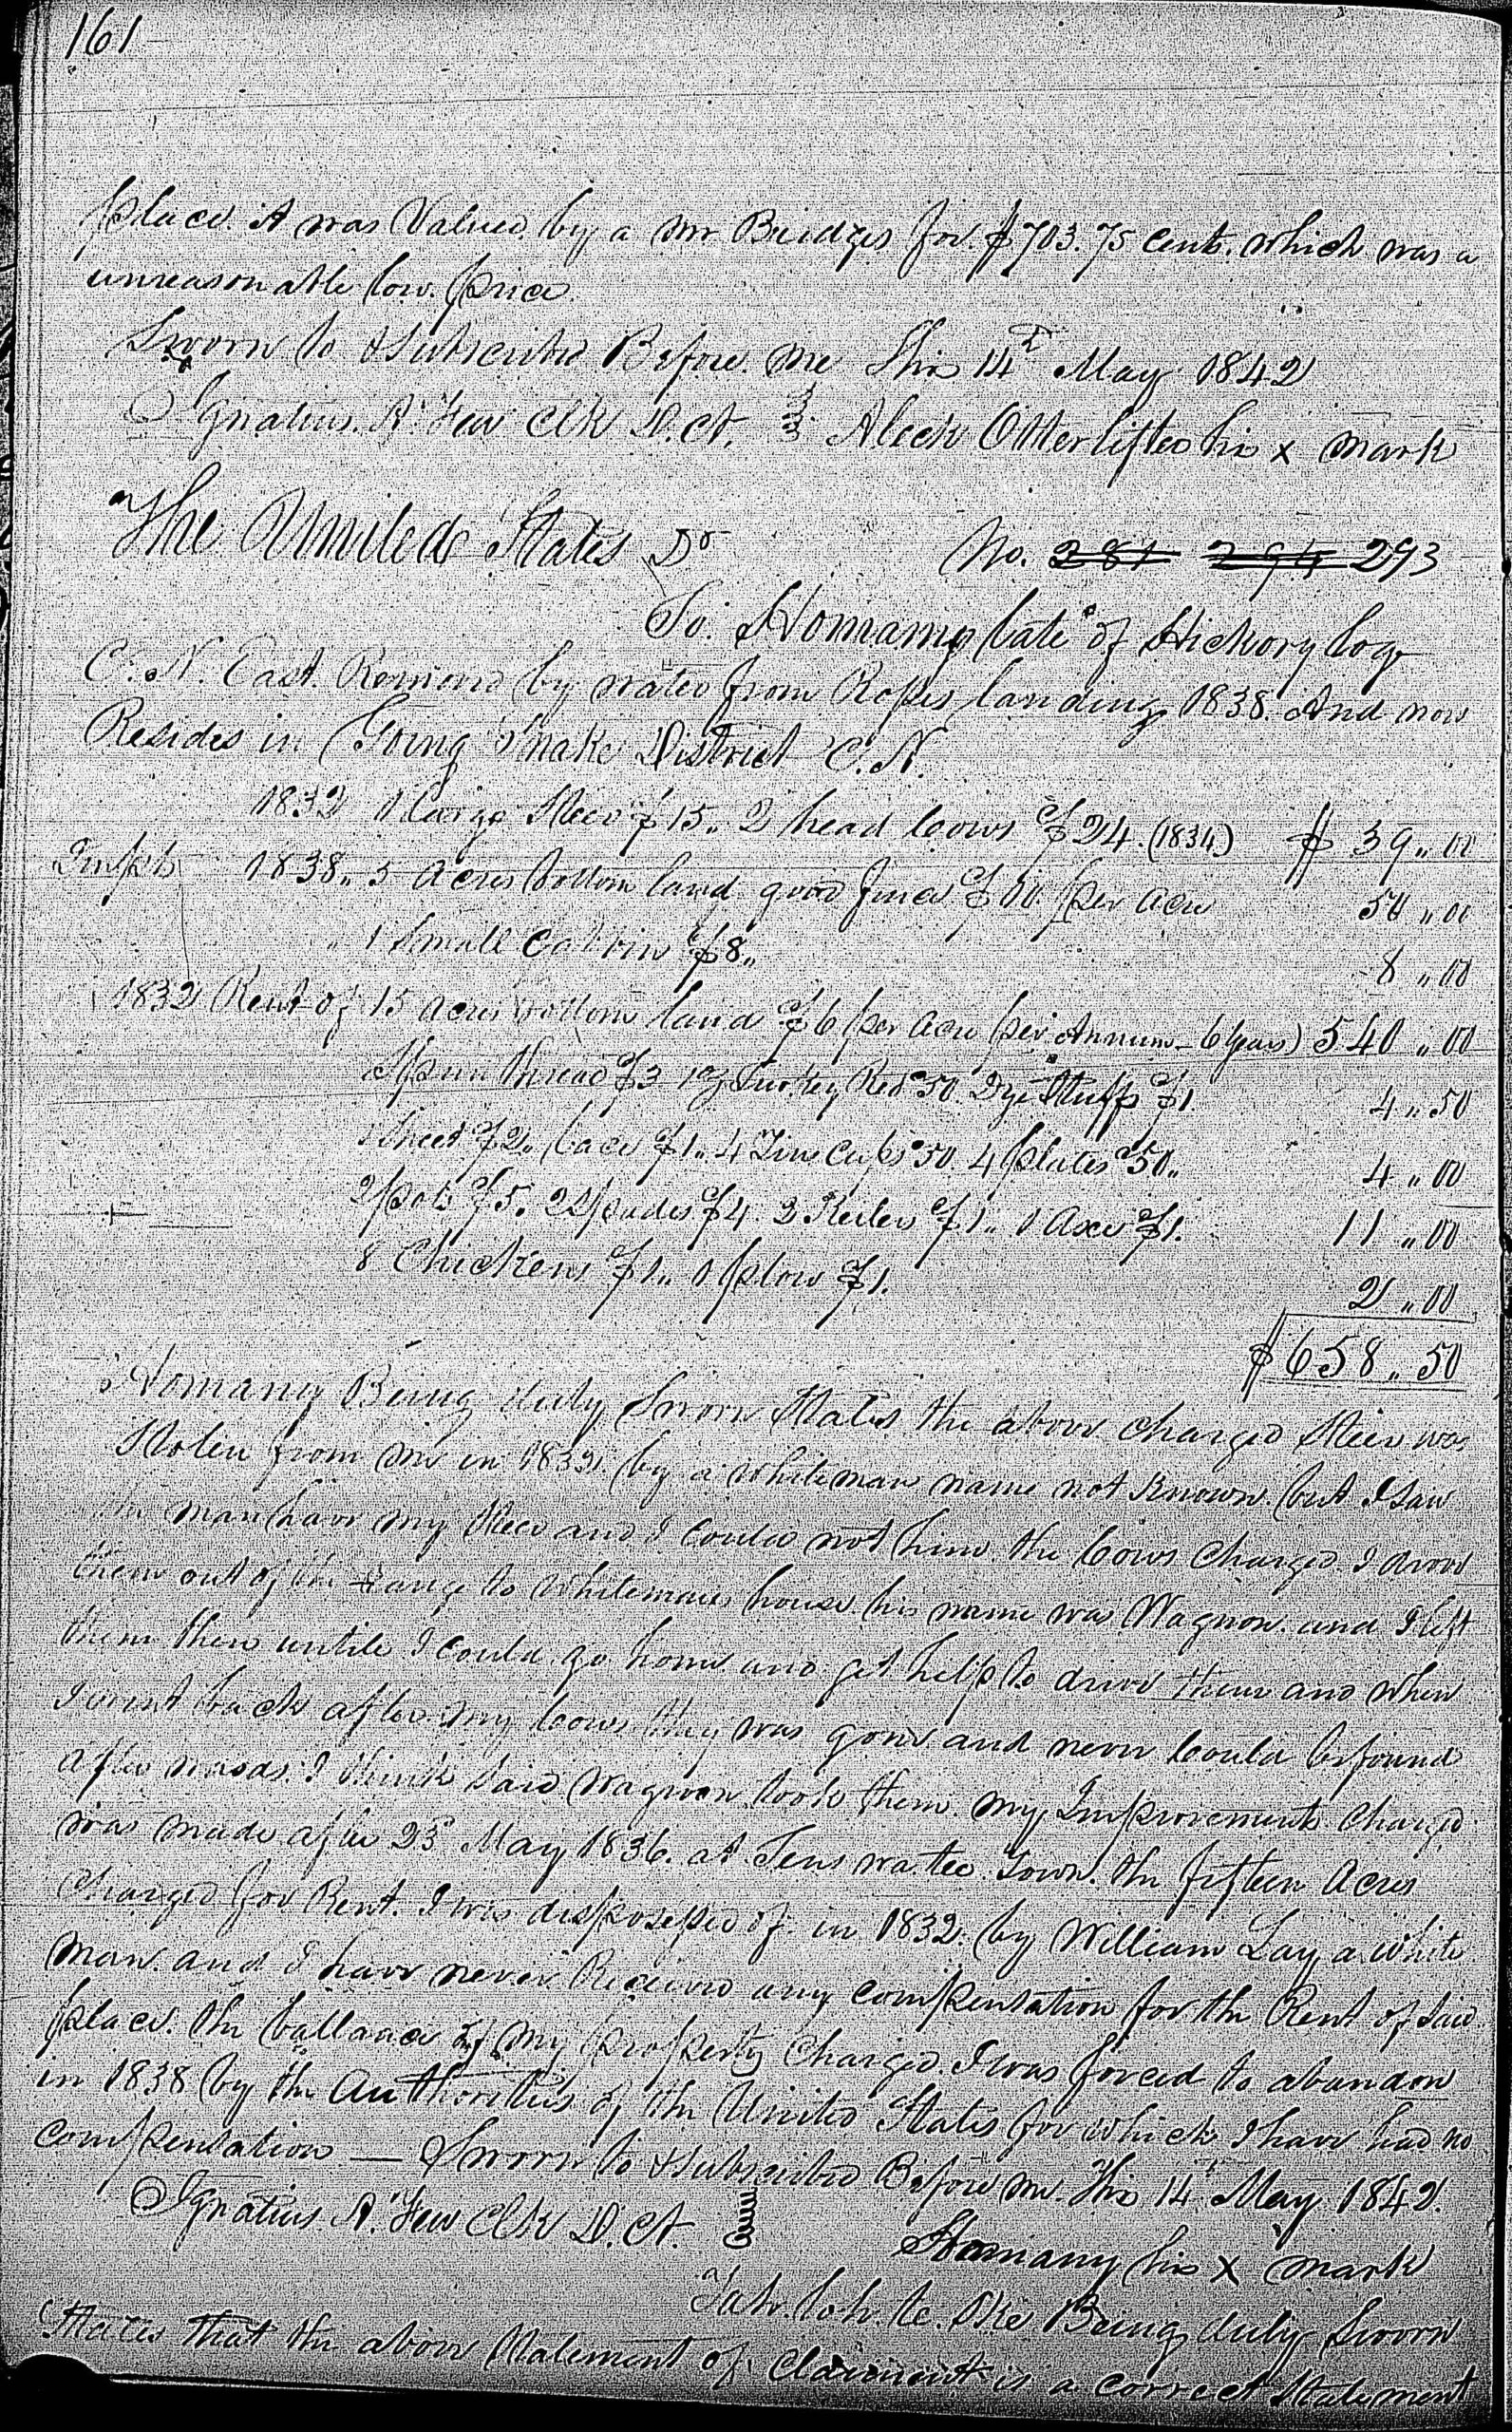 161
place. It was Valued by a Mr Bridges for $703.75 cents. which was a
unreasonable low price.
Sworn to & Subscribed Before me this 14th May 1842
Ignatius A. Few Clk D. Ct. Aleck Otterlifter his x mark
The United States Dr No. 281 294 293
To. Nomany late of Hickory Log
C. N. East. Removed by water from Rosses landing 1838. And now
Resides in Going Snake District C. N.
1832 1 large Steer $15 " 2 head Cows $24. (1834) $ 39 " 00
Impts 1838 " 5 Acres bottom land good fence $10 per acre 50 " 00
" 1 Small Cabbin $8 " 8 " 00
1832 Rent of 15 acres bottom land $6 per acre per Annum - 6 years) 540 " 00
Spun thread $3 1 oz Turkey Red 50. Dye Stuff $1. 4 " 50
1 Sheet $2 " lace $1 " 4 Tin Cups 50. 4 plates 50 " 4 " 00
2 pots $5. 2 Spades $4. 3 Keelers $1 " 1 Axe $1. 11 " 00
8 Chickens $1 " 1 plow $1. 2 " 00
$ 658 " 50
Nomany Being duly Sworn States the above charged Steer was
Stolen from me in 1832 by a whiteman name not Known. but I saw
the man have my Steer and I could not him. the Cows Charged I drove
them out of the range to Whitemans house his name was Wagnon. and I left
them then untile I could go home and get help to drive them and when
I went back after my Cows they was gone and never Could be found
after wards. I think said Wagnon took them. my Improvements Charged
was made after 23d May 1836. at Tens wa tee Town. the fifteen Acres
Charged for Rent. I was dispossessed of in 1832. by William Lay a white
man. and I have never Received any compensation for the Rent of said
place. the ballance of my property Charged I was forced to abandon
in 1838 by the Authorities of the United States for which I have had no
compensation — Sworn to & subscribed Before me. this 14th May 1842.
Ignatius A. Few Clk D. Ct.
Nomany his x mark
Tah. loh. te. ske Being duly Sworn
States that the above Statement of Claimint is a correct Statement